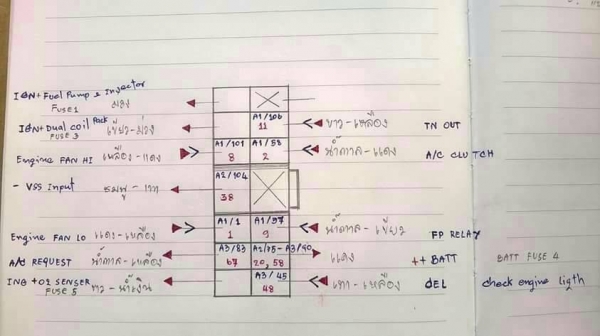 IGN + Fuel Pump & Injector
Fuse 1 ม่วง
A1/106
11
ขาว-เหลือง TN OUT
IGN + Dual coil Pack เขียว-ม่วง
FUSE 3
A1/101
8
A1/58
2
Engine FAN HI เหลือง-แดง
น้ำตาล-แดง A/C CLUTCH
A2/104
38
- VSS Input ชมพู-เทา
A1/1
1
A1/97
9
Engine FAN LO แดง-เหลือง
น้ำตาล-เขียว FP RELAY
A3/83
67
A2/75-A3/90
20, 58
A/C REQUEST น้ำตาล-เหลือง
แดง ++ BATT BATT FUSE 4
A3/45
48
ING + O2 SENSER ขาว-น้ำเงิน
FUSE 5
เทา-เหลือง DEL check engine ligth